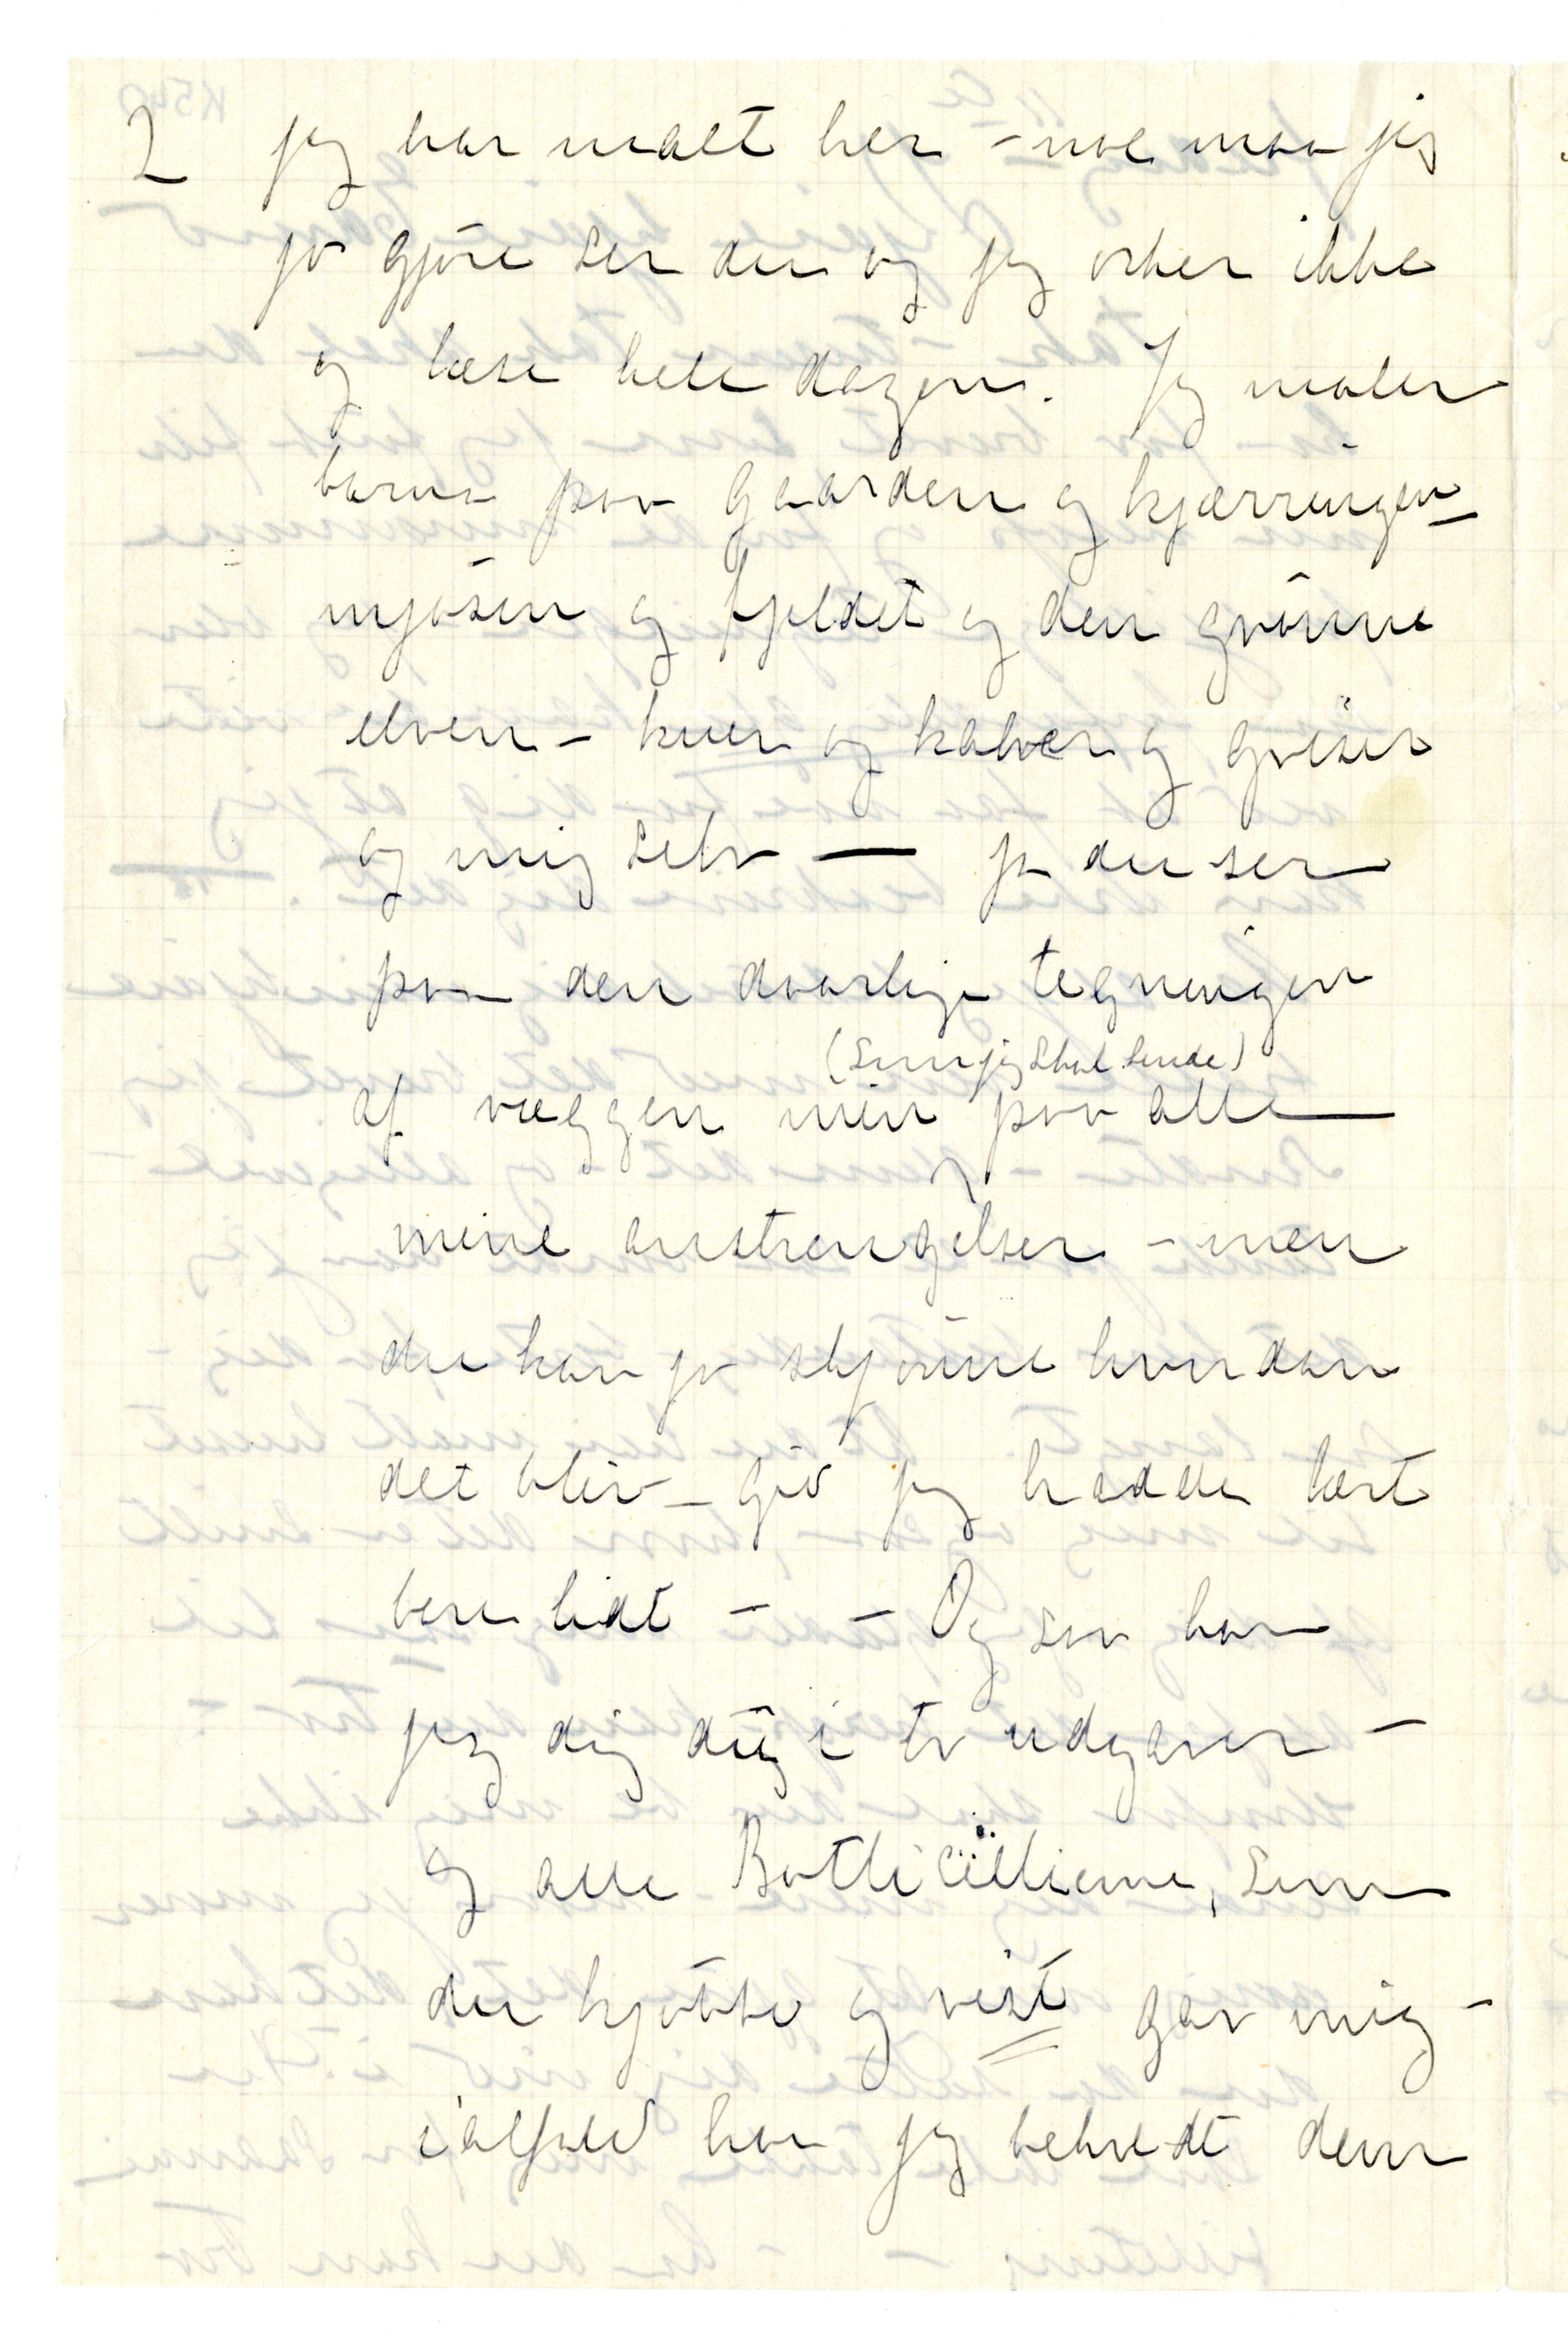 2 jeg har malt her – noe maa jeg
jo gjøre ser du og jeg orker ikke
og læse hele dagen. Jeg maler
barna paa gaarden og kjærringen –
mjøsen og fjeldet og den grønne
elven – kuer og kalver og griser
og mig selv — ja du ser
paa den daarlige tegningen
(som jeg skal sende)
af væggen min paa alle
mine anstrengelser – men
du kan jo skjønne hvordan
det blir – gid jeg hadde lært
bare lidt – – Og saa har
jeg dig i to udgaver –
og alle Botticellierne, som
du kjøbte og vist gav mig –
ialfald har jeg beholdt dem